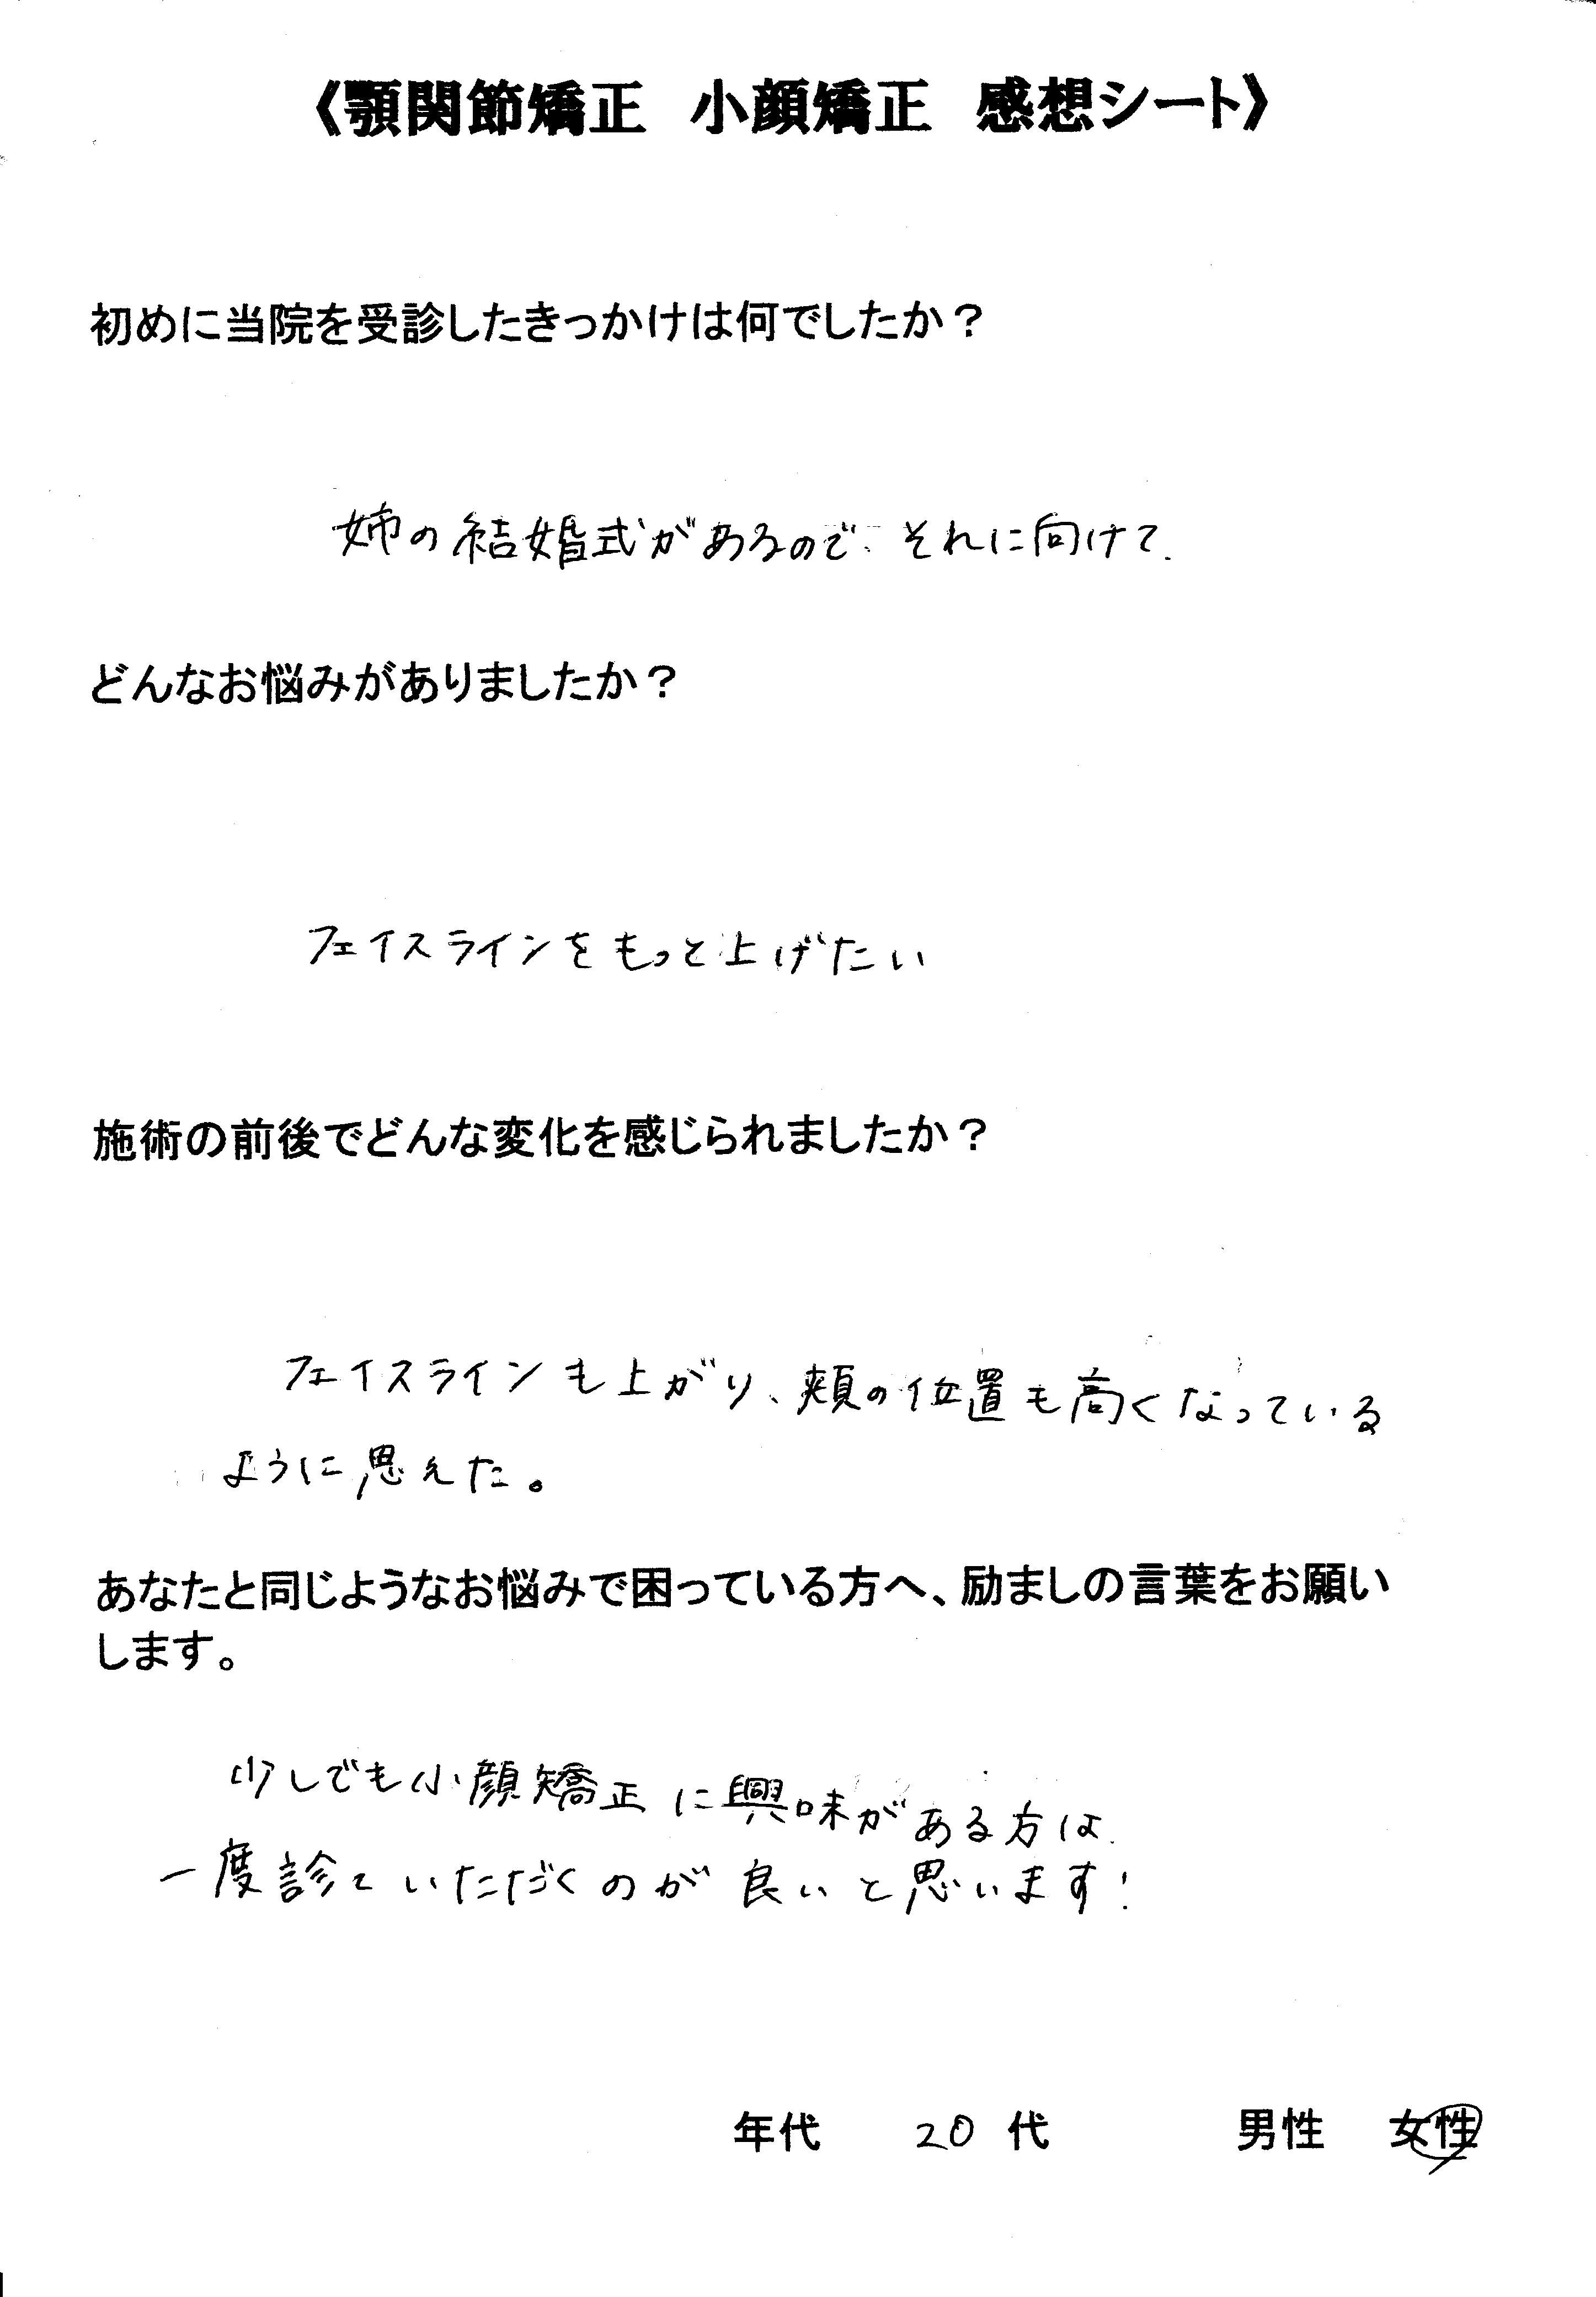 《顎関節矯正　小顔矯正　感想シート》
初めに当院を受診したきっかけは何でしたか？
姉の結婚式があるので、それに向けて.
どんなお悩みがありましたか？
フェイスラインをもっと上げたい
施術の前後でどんな変化を感じられましたか？
フェイスラインも上がり、頬の位置も高くなっている
ように思えた。
あなたと同じようなお悩みで困っている方へ、励ましの言葉をお願い
します。
少しでも小顔矯正に興味がある方は、
一度診ていただくのが良いと思います！
年代　20代　男性　女性